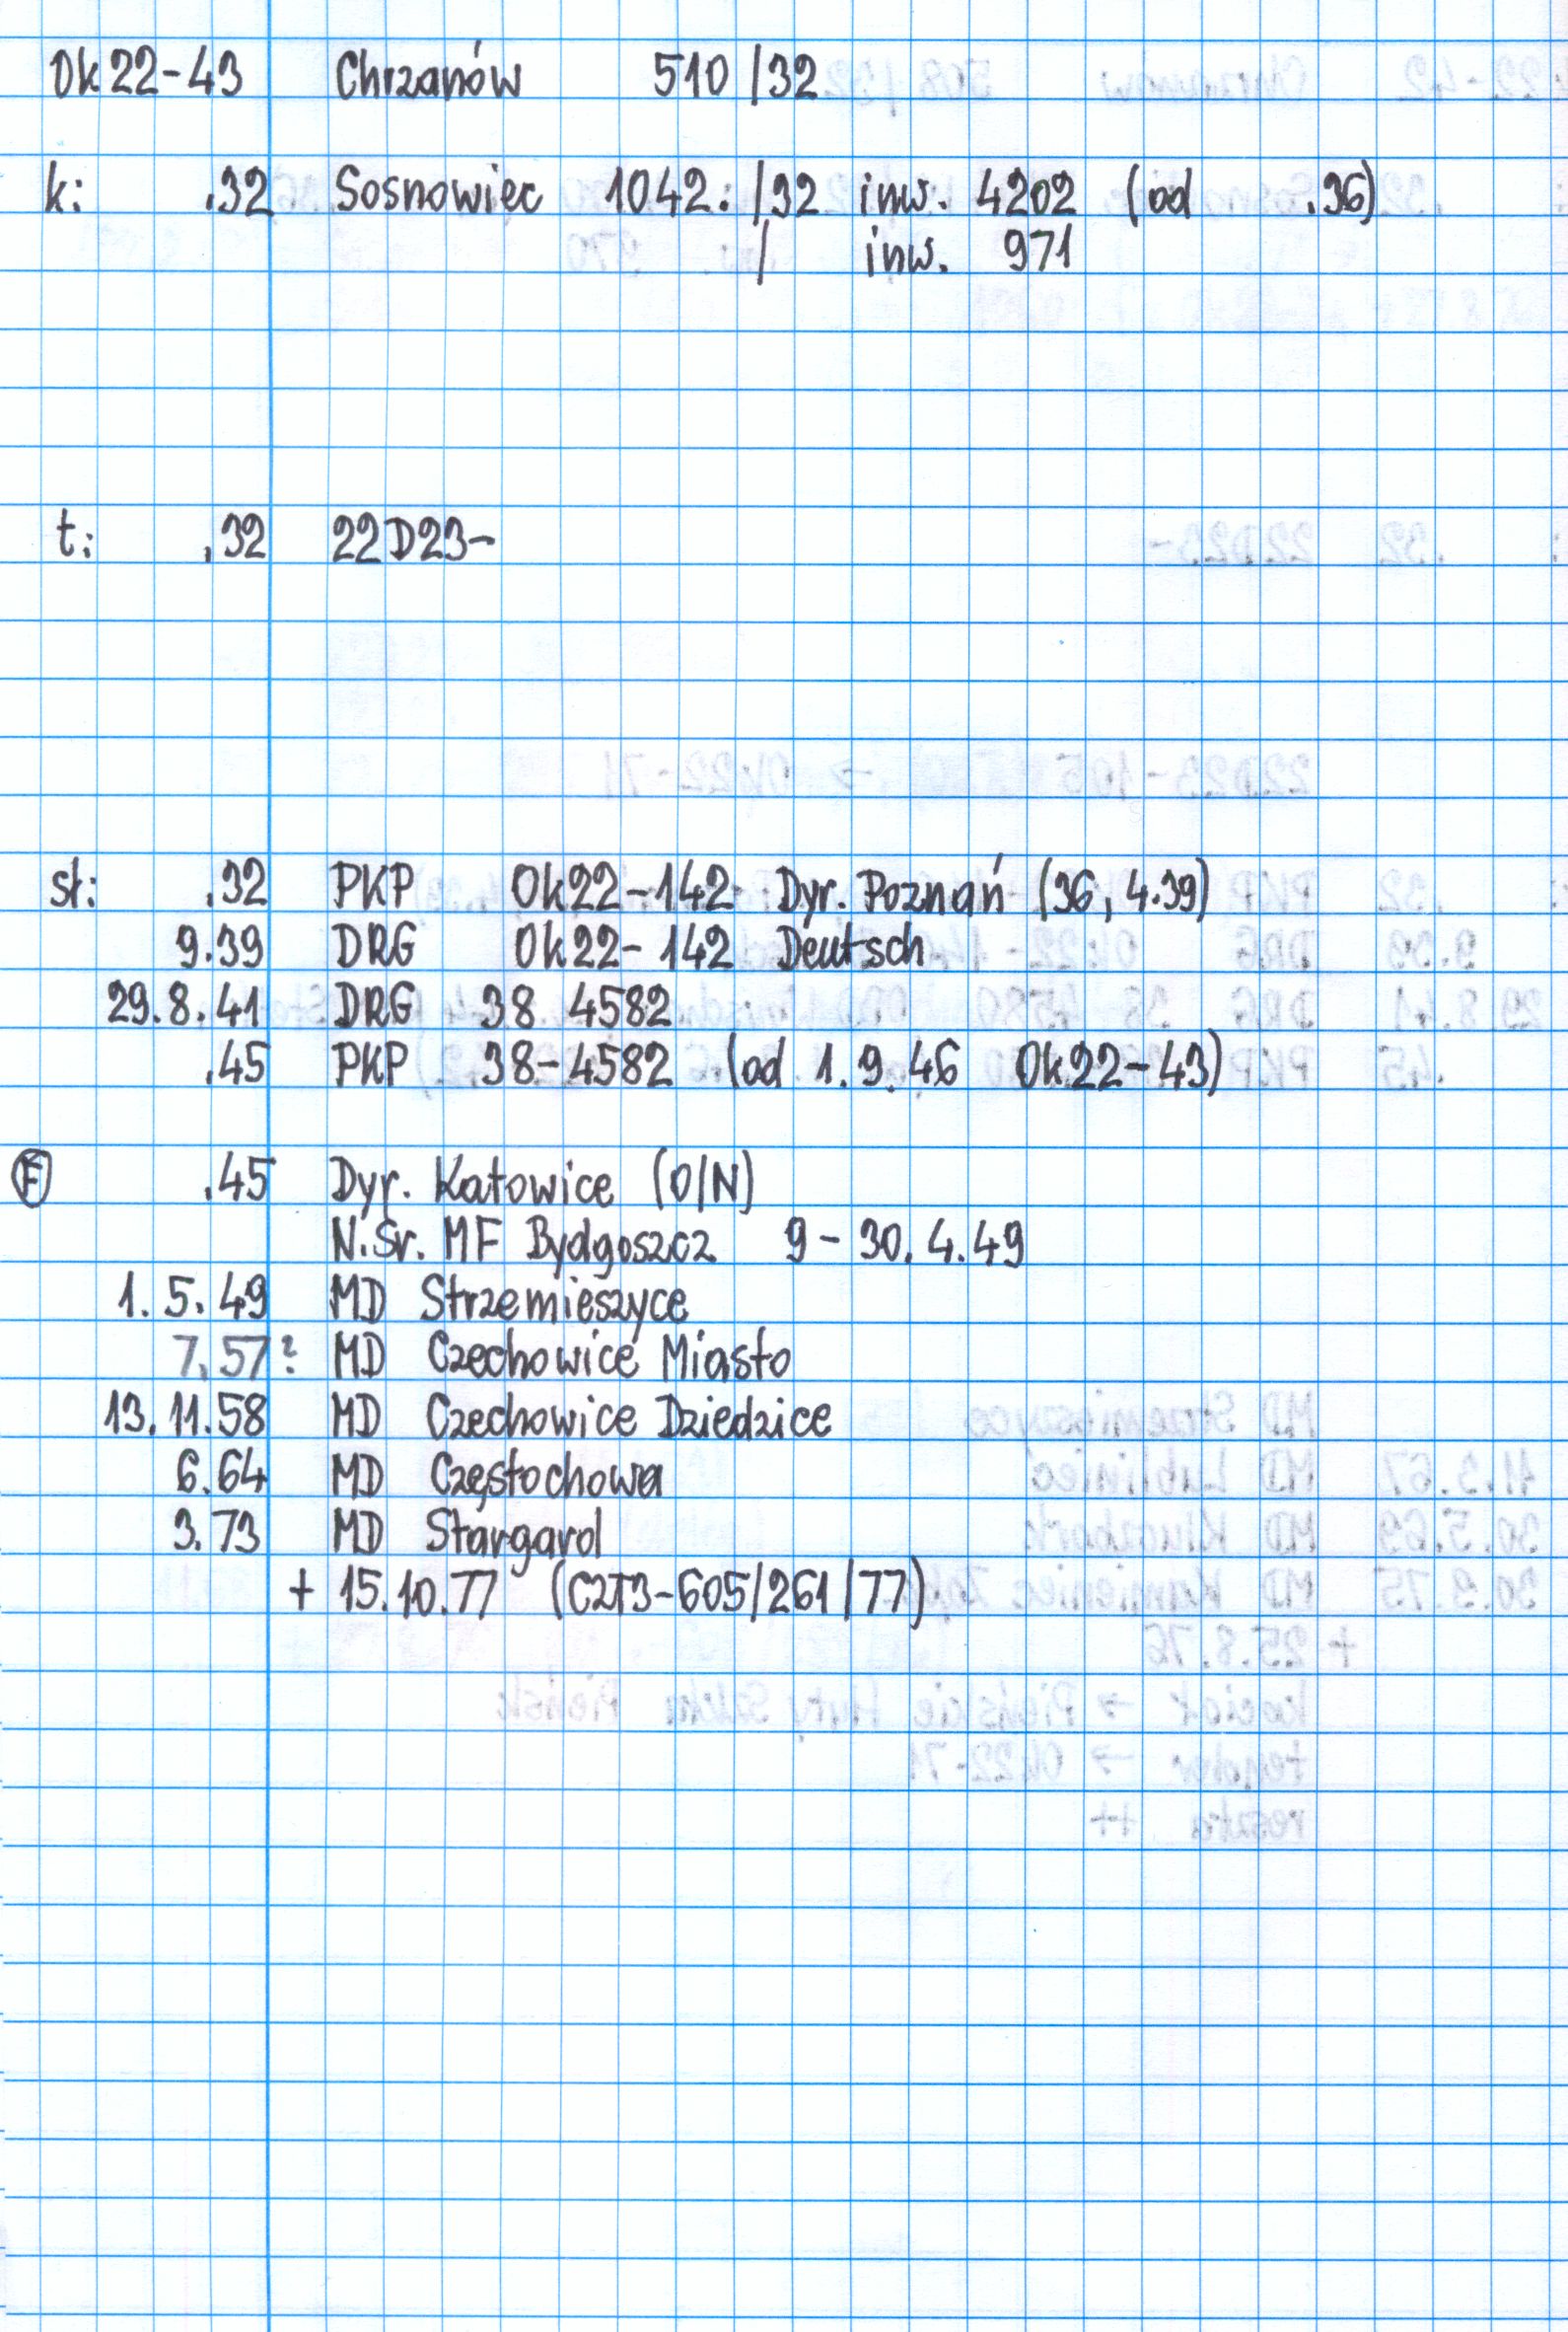 Ok22-43 Chrzanów 510/32
k: .32 Sosnowiec 1042:/32 inw. 4202 (od .36)
/ inw. 971
t: .32 22D23-
st: .32 PKP Ok22-142 Dyr. Poznań (36, 4.39)
9.39 DRG Ok22-142 Deutsch
29.8.41 DRG 38 4582
.45 PKP 38-4582 (od 1.9.46 Ok22-43)
F .45 Dyr. Katowice (O/N)
N.Śr. MF Bydgoszcz 9-30.4.49
1.5.49 MD Strzemieszyce
7.57? MD Czechowice Miasto
13.11.58 MD Czechowice Dziedzice
6.64 MD Częstochowa
3.73 MD Stargard
+ 15.10.77 (C2T3-605/261/77)